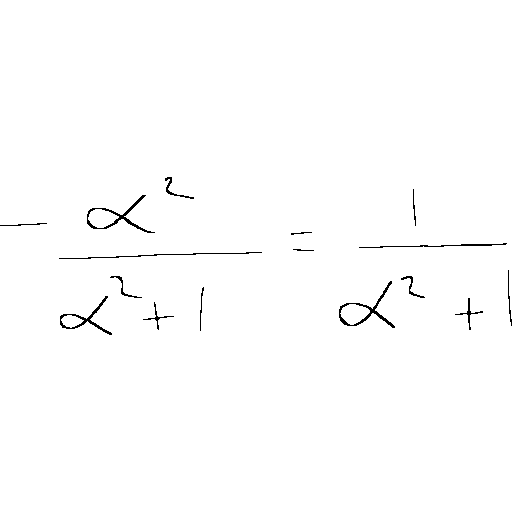 - \frac{\alpha^2}{\alpha^2 + 1} = \frac{1}{\alpha^2 + 1}